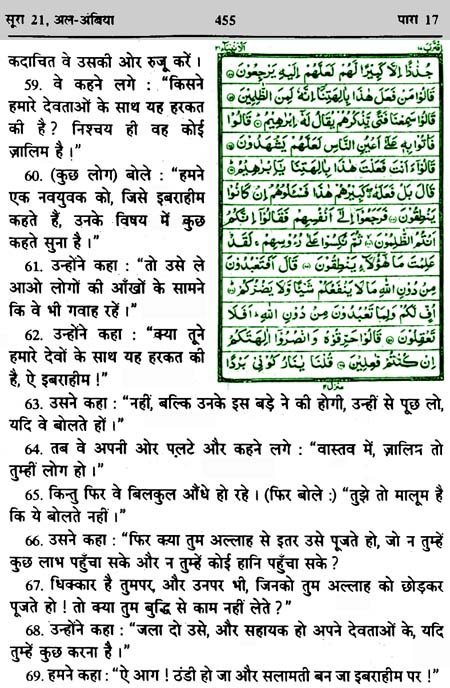 सूरा 21, अल-अंबिया 455 पारा 17
कदाचित वे उसकी ओर रुजू करें ।
59. वे कहने लगे : “किसने
हमारे देवताओं के साथ यह हरकत
की है? निश्चय ही वह कोई
ज़ालिम है !”
60. (कुछ लोग) बोले : “हमने
एक नवयुवक को, जिसे इबराहीम
कहते हैं, उनके विषय में कुछ
कहते सुना है ।”
61. उन्होंने कहा : “तो उसे ले
आओ लोगों की आँखों के सामने
कि वे भी गवाह रहें ।”
62. उन्होंने कहा : “क्या तूने
हमारे देवों के साथ यह हरकत की
है, ऐ इबराहीम !”
الانبیاء ٢١
جُذٰذًا اِلَّا كَبِيْرًا لَّهُمْ لَعَلَّهُمْ اِلَيْهِ يَرْجِعُوْنَ
قَالُوْا مَنْ فَعَلَ هٰذَا بِاٰلِهَتِنَآ اِنَّهٗ لَمِنَ الظّٰلِمِيْنَ
قَالُوْا سَمِعْنَا فَتًى يَّذْكُرُهُمْ يُقَالُ لَهٗٓ اِبْرٰهِيْمُ قَالُوْا
فَاْتُوْا بِهٖ عَلٰٓى اَعْيُنِ النَّاسِ لَعَلَّهُمْ يَشْهَدُوْنَ
قَالُوْٓا ءَاَنْتَ فَعَلْتَ هٰذَا بِاٰلِهَتِنَا يٰٓاِبْرٰهِيْمُ
قَالَ بَلْ فَعَلَهٗ كَبِيْرُهُمْ هٰذَا فَسْـَٔلُوْهُمْ اِنْ كَانُوْا
يَنْطِقُوْنَ فَرَجَعُوْٓا اِلٰٓى اَنْفُسِهِمْ فَقَالُوْٓا اِنَّكُمْ
اَنْتُمُ الظّٰلِمُوْنَ ثُمَّ نُكِسُوْا عَلٰى رُءُوْسِهِمْ لَقَدْ
عَلِمْتَ مَا هٰٓؤُلَآءِ يَنْطِقُوْنَ قَالَ اَفَتَعْبُدُوْنَ
مِنْ دُوْنِ اللّٰهِ مَا لَا يَنْفَعُكُمْ شَيْـًٔا وَّلَا يَضُرُّكُمْ
اُفٍّ لَّكُمْ وَلِمَا تَعْبُدُوْنَ مِنْ دُوْنِ اللّٰهِ اَفَلَا
تَعْقِلُوْنَ قَالُوْا حَرِّقُوْهُ وَانْصُرُوْٓا اٰلِهَتَكُمْ
اِنْ كُنْتُمْ فٰعِلِيْنَ قُلْنَا يٰنَارُ كُوْنِيْ بَرْدًا
63. उसने कहा : “नहीं, बल्कि उनके इस बड़े ने की होगी, उन्हीं से पूछ लो,
यदि वे बोलते हों ।”
64. तब वे अपनी ओर पलटे और कहने लगे : “वास्तव में, ज़ालिम तो
तुम्हीं लोग हो ।”
65. किन्तु फिर वे बिलकुल औंधे हो रहे । (फिर बोले :) “तुझे तो मालूम है
कि ये बोलते नहीं ।”
66. उसने कहा : “फिर क्या तुम अल्लाह से इतर उसे पूजते हो, जो न तुम्हें
कुछ लाभ पहुँचा सके और न तुम्हें कोई हानि पहुँचा सके ?
67. धिक्कार है तुमपर, और उनपर भी, जिनको तुम अल्लाह को छोड़कर
पूजते हो ! तो क्या तुम बुद्धि से काम नहीं लेते ?”
68. उन्होंने कहा : “जला दो उसे, और सहायक हो अपने देवताओं के, यदि
तुम्हें कुछ करना है ।”
69. हमने कहा : “ऐ आग ! ठंडी हो जा और सलामती बन जा इबराहीम पर !”